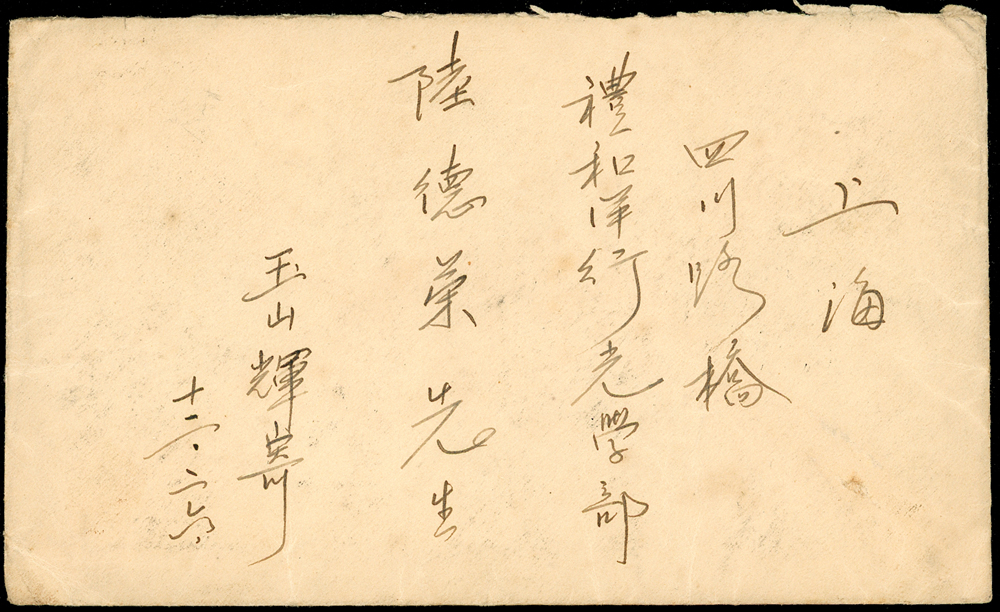 上海
四川路橋
禮和洋行光學部
陸德榮先生
玉山輝寄
十二、二六、